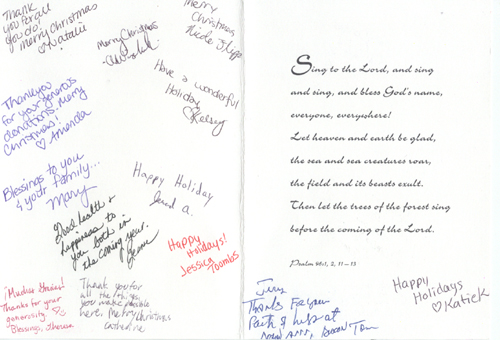 Thank
you for all
you do.
Merry Christmas
♡ Natalie
Merry Christmas
Merry
Christmas,
Nicole
Have a wonderful
Holiday
♡ Kelsey
Thank you
for your generous
donations. Merry
Christmas!
♡ Amanda
Blessings to you
& your family...
Mary
Happy Holiday
Good health &
happiness to
you both in
the coming year.
Happy
Holidays!
Jessica
Toombs
¡Muchas Gracias!
Thanks for your
generosity!
Blessings, Theresa
Thank you for
all the things
you make possible
here. Merry Christmas
Catherine
Sing to the Lord, and sing
and sing, and bless God's name,
everyone, everywhere!
Let heaven and earth be glad,
the sea and sea creatures roar,
the field and its beasts exult.
Then let the trees of the forest sing
before the coming of the Lord.
Psalm 96:1, 2, 11–13
Thanks for your
Faith & help at
Happy
Holidays
♡ Katie K